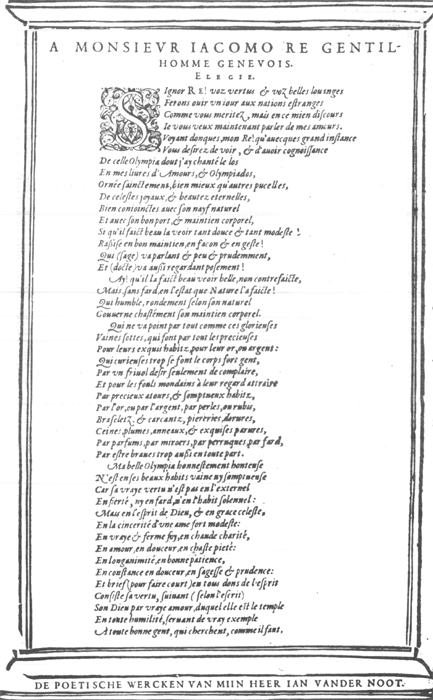 A MONSIEVR IACOMO RE GENTIL-
HOMME GENEVOIS.
ELEGIE.
Signor RE! voz vertus & voz belles louanges
Ferons ouir un iour aux nations estranges
Comme vous meritez, mais en ce mien discours
Ie vous veux maintenant parler de mes amours.
Voyant donques, mon Re! qu'auecques grand instance
Vous desirez de voir, & d'auoir cognoissance
De celle Olympia dont j'ay chanté le los
En mes liures d'Amours, & Olympiados,
Ornée sainctement, bien mieux qu'autres pucelles,
De celestes joyaux, & beautez eternelles,
Bien conioinctes auec son nayf naturel
Et auec son bon port, & maintien corporel,
Si qu'il faict beau la veoir tant douce & tant modeste!
Rassise en bon maintien, en facon & en geste!
Qui (sage) va parlant & peu & prudemment,
Et (docte) va aussi regardant posement!
Ay! qu'il la faict beau veoir belle, non contrefaicte,
Mais sans fard, en l'estat que Nature l'a faicte!
Qui humble, rondement selon son naturel
Gouuerne chastément son maintien corporel.
Qui ne va point par tout comme ces glorieuses
Vaines sottes, qui font par tout les precieuses
Pour leurs exquis habitz, pour leur or, ou argent:
Qui curieuses trop se font le corps fort gent,
Par vn friuol desir seulement de complaire,
Et pour les fouls mondains à leur regard attraire
Par precieux atours, & somptueux habitz,
Par l'or, ou par l'argent, par perles, ou rubis,
Braseletz, & carcantz, pierreries, dorures,
Ceines, plumes, anneaux, & exquises parures,
Par parfums, par miroers, par perruques, par fard,
Par estre braues trop aussi en toute part.
Ma belle Olympia honnestement honteuse
N'est en ses beaux habits vaine ny somptueuse
Car sa vraye vertu n'est pas en l'externel
En fierté, ny en fard, n'en l'habit solennel:
Mais en l'esprit de Dieu, & en grace celeste,
En la cincerité d'vne ame fort modeste:
En vraye & ferme foy, en chaude charité,
En amour, en douceur, en chaste pieté:
En longanimité, en bonne patience,
En constance en douceur, en sagesse & prudence:
Et brief (pour faire court) en tous dons de l'esprit
Consiste sa vertu, suiuant (selon l'escrit)
Son Dieu par vraye amour, duquel elle est le temple
En toute humilité, seruant de vray exemple
A toute bonne gent, qui cherchent, comme il faut,
DE POETISCHE WERCKEN VAN MIIN HEER IAN VANDER NOOT.